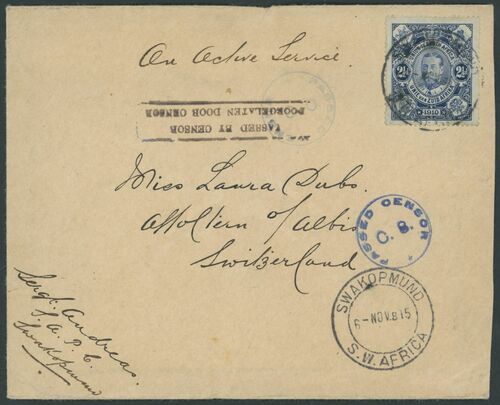 On Active Service.
PASSED BY CENSOR
DOORGELATEN DOOR CENSOR
2½ 2½
1910
Miss Laura Dubs.
Affoltern a/Albis
Switzerland
PASSED CENSOR
C. 8.
SWAKOPMUND
6-NOV.8 15
S.W. AFRICA
Sergt. Andreas.
Swakopmund